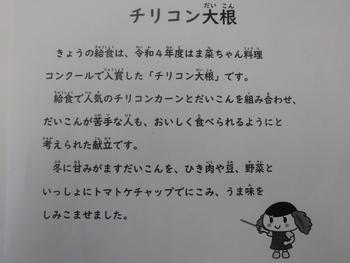 チリコン大根
きょうの給食は、令和４年度はま菜ちゃん料理
コンクールで入賞した「チリコン大根」です。
給食で人気のチリコンカーンとだいこんを組み合わせ、
だいこんが苦手な人も、おいしく食べられるようにと
考えられた献立です。
冬に甘みがますだいこんを、ひき肉や豆、野菜と
いっしょにトマトケチャップでにこみ、うま味を
しみこませました。